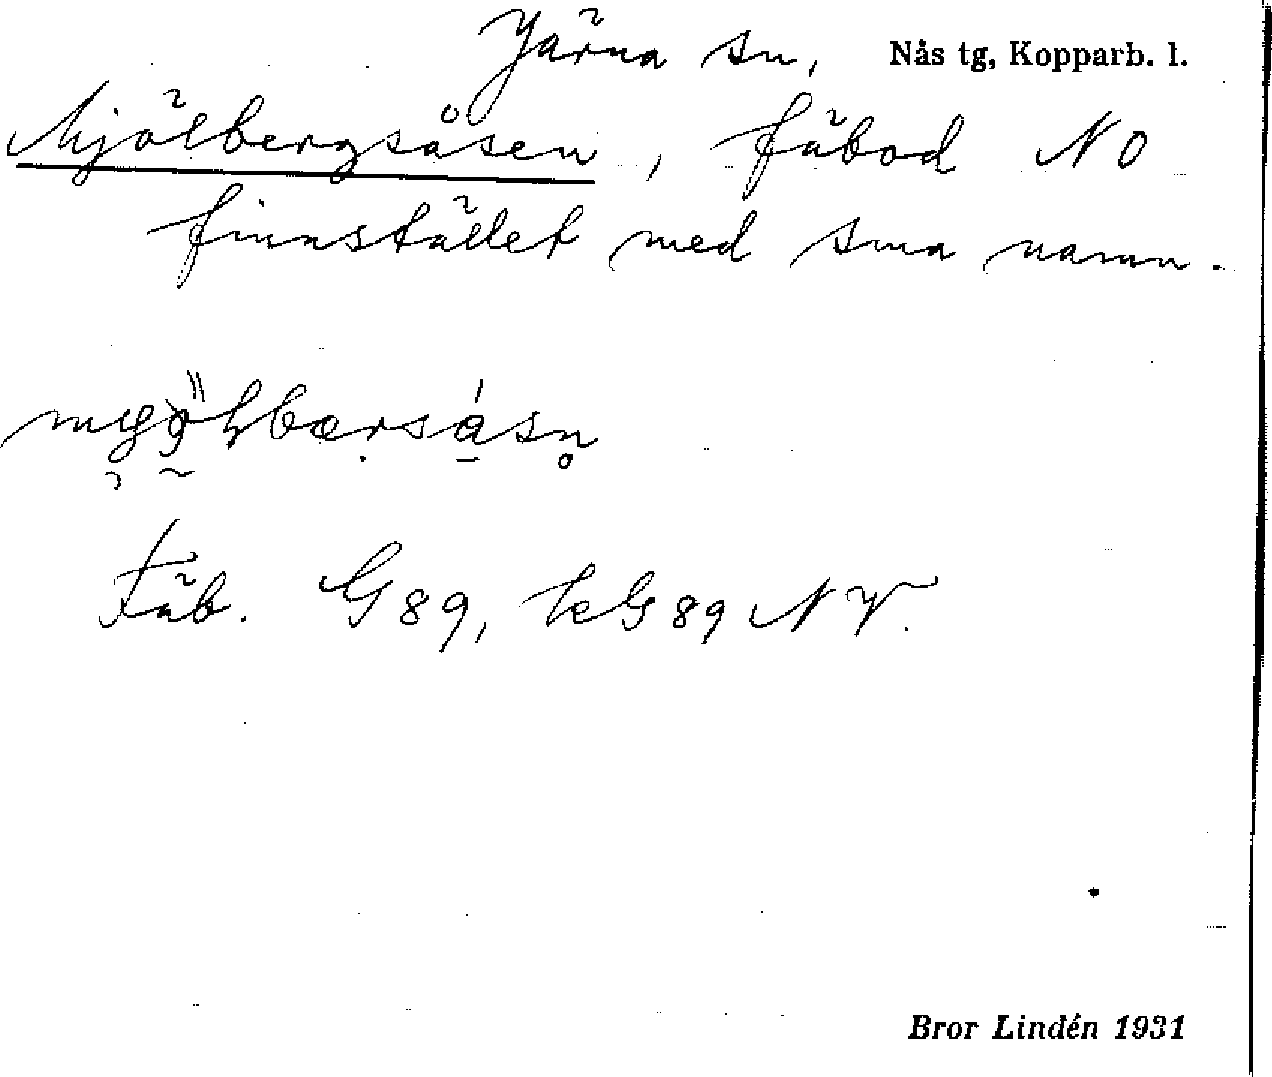 Järna sn, Nås tg, Kopparb. l.
Mjölbergsåsen, fäbod NO
finnstället med sma namn.
Fäb. G89, kG89 NV.
Bror Lindén 1931